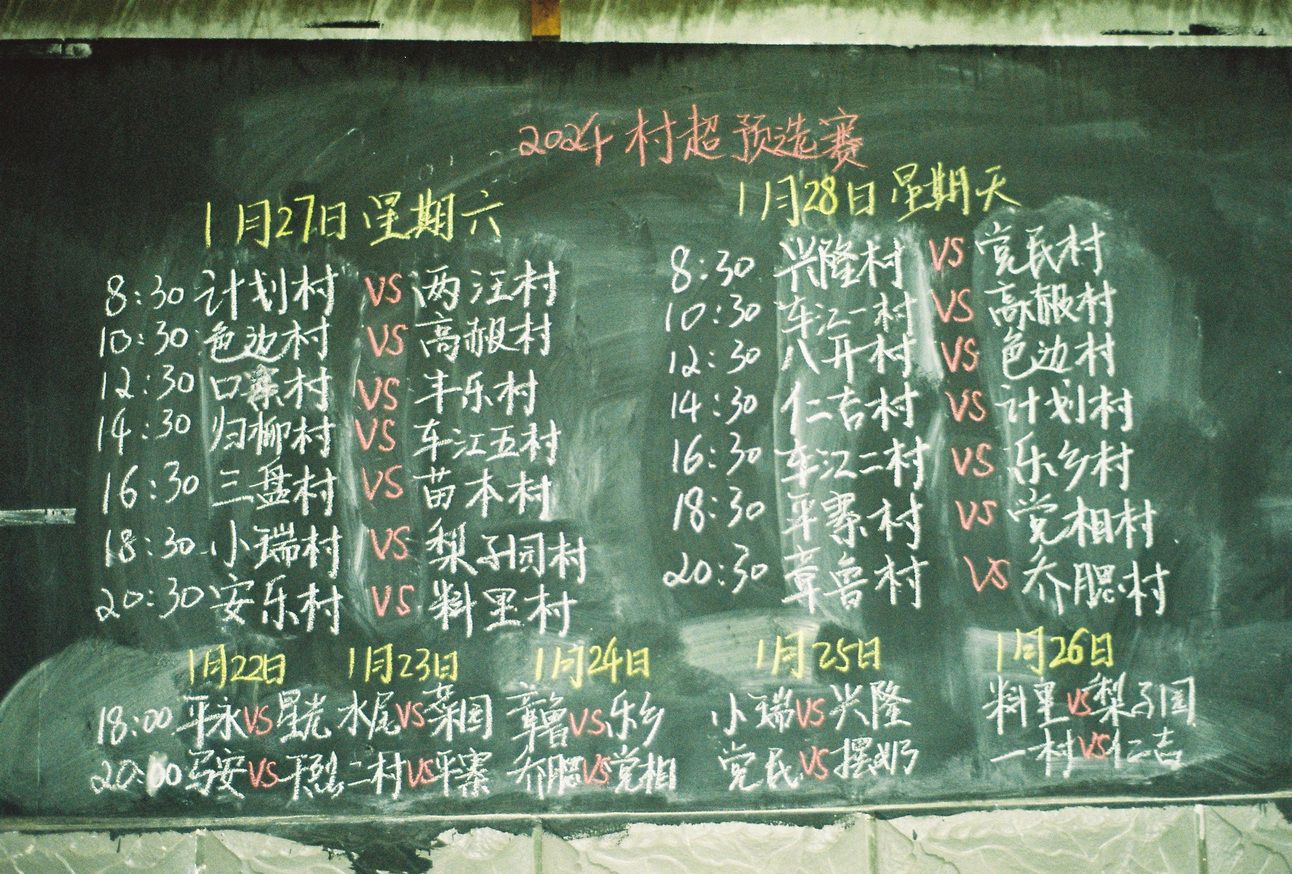 2024村超预选赛
1月27日 星期六
8:30 计划村 VS 两汪村
10:30 色边村 VS 高赧村
12:30 口寨村 VS 丰乐村
14:30 归柳村 VS 车江五村
16:30 三盘村 VS 苗本村
18:30 小瑞村 VS 梨子园村
20:30 安乐村 VS 料里村
1月28日 星期天
8:30 兴隆村 VS 党民村
10:30 车江一村 VS 高赧村
12:30 八开村 VS 色边村
14:30 仁吉村 VS 计划村
16:30 车江二村 VS 乐乡村
18:30 平寨村 VS 党相村
20:30 章鲁村 VS 乔腮村
1月22日 1月23日 1月24日 1月25日 1月26日
18:00 平永VS星光 水尾VS菜园 章鲁VS乐乡 小瑞VS兴隆 料里VS梨子园
20:00 马安VS干烈 二村VS平寨 乔腮VS党相 党民VS摆奶 一村VS仁吉